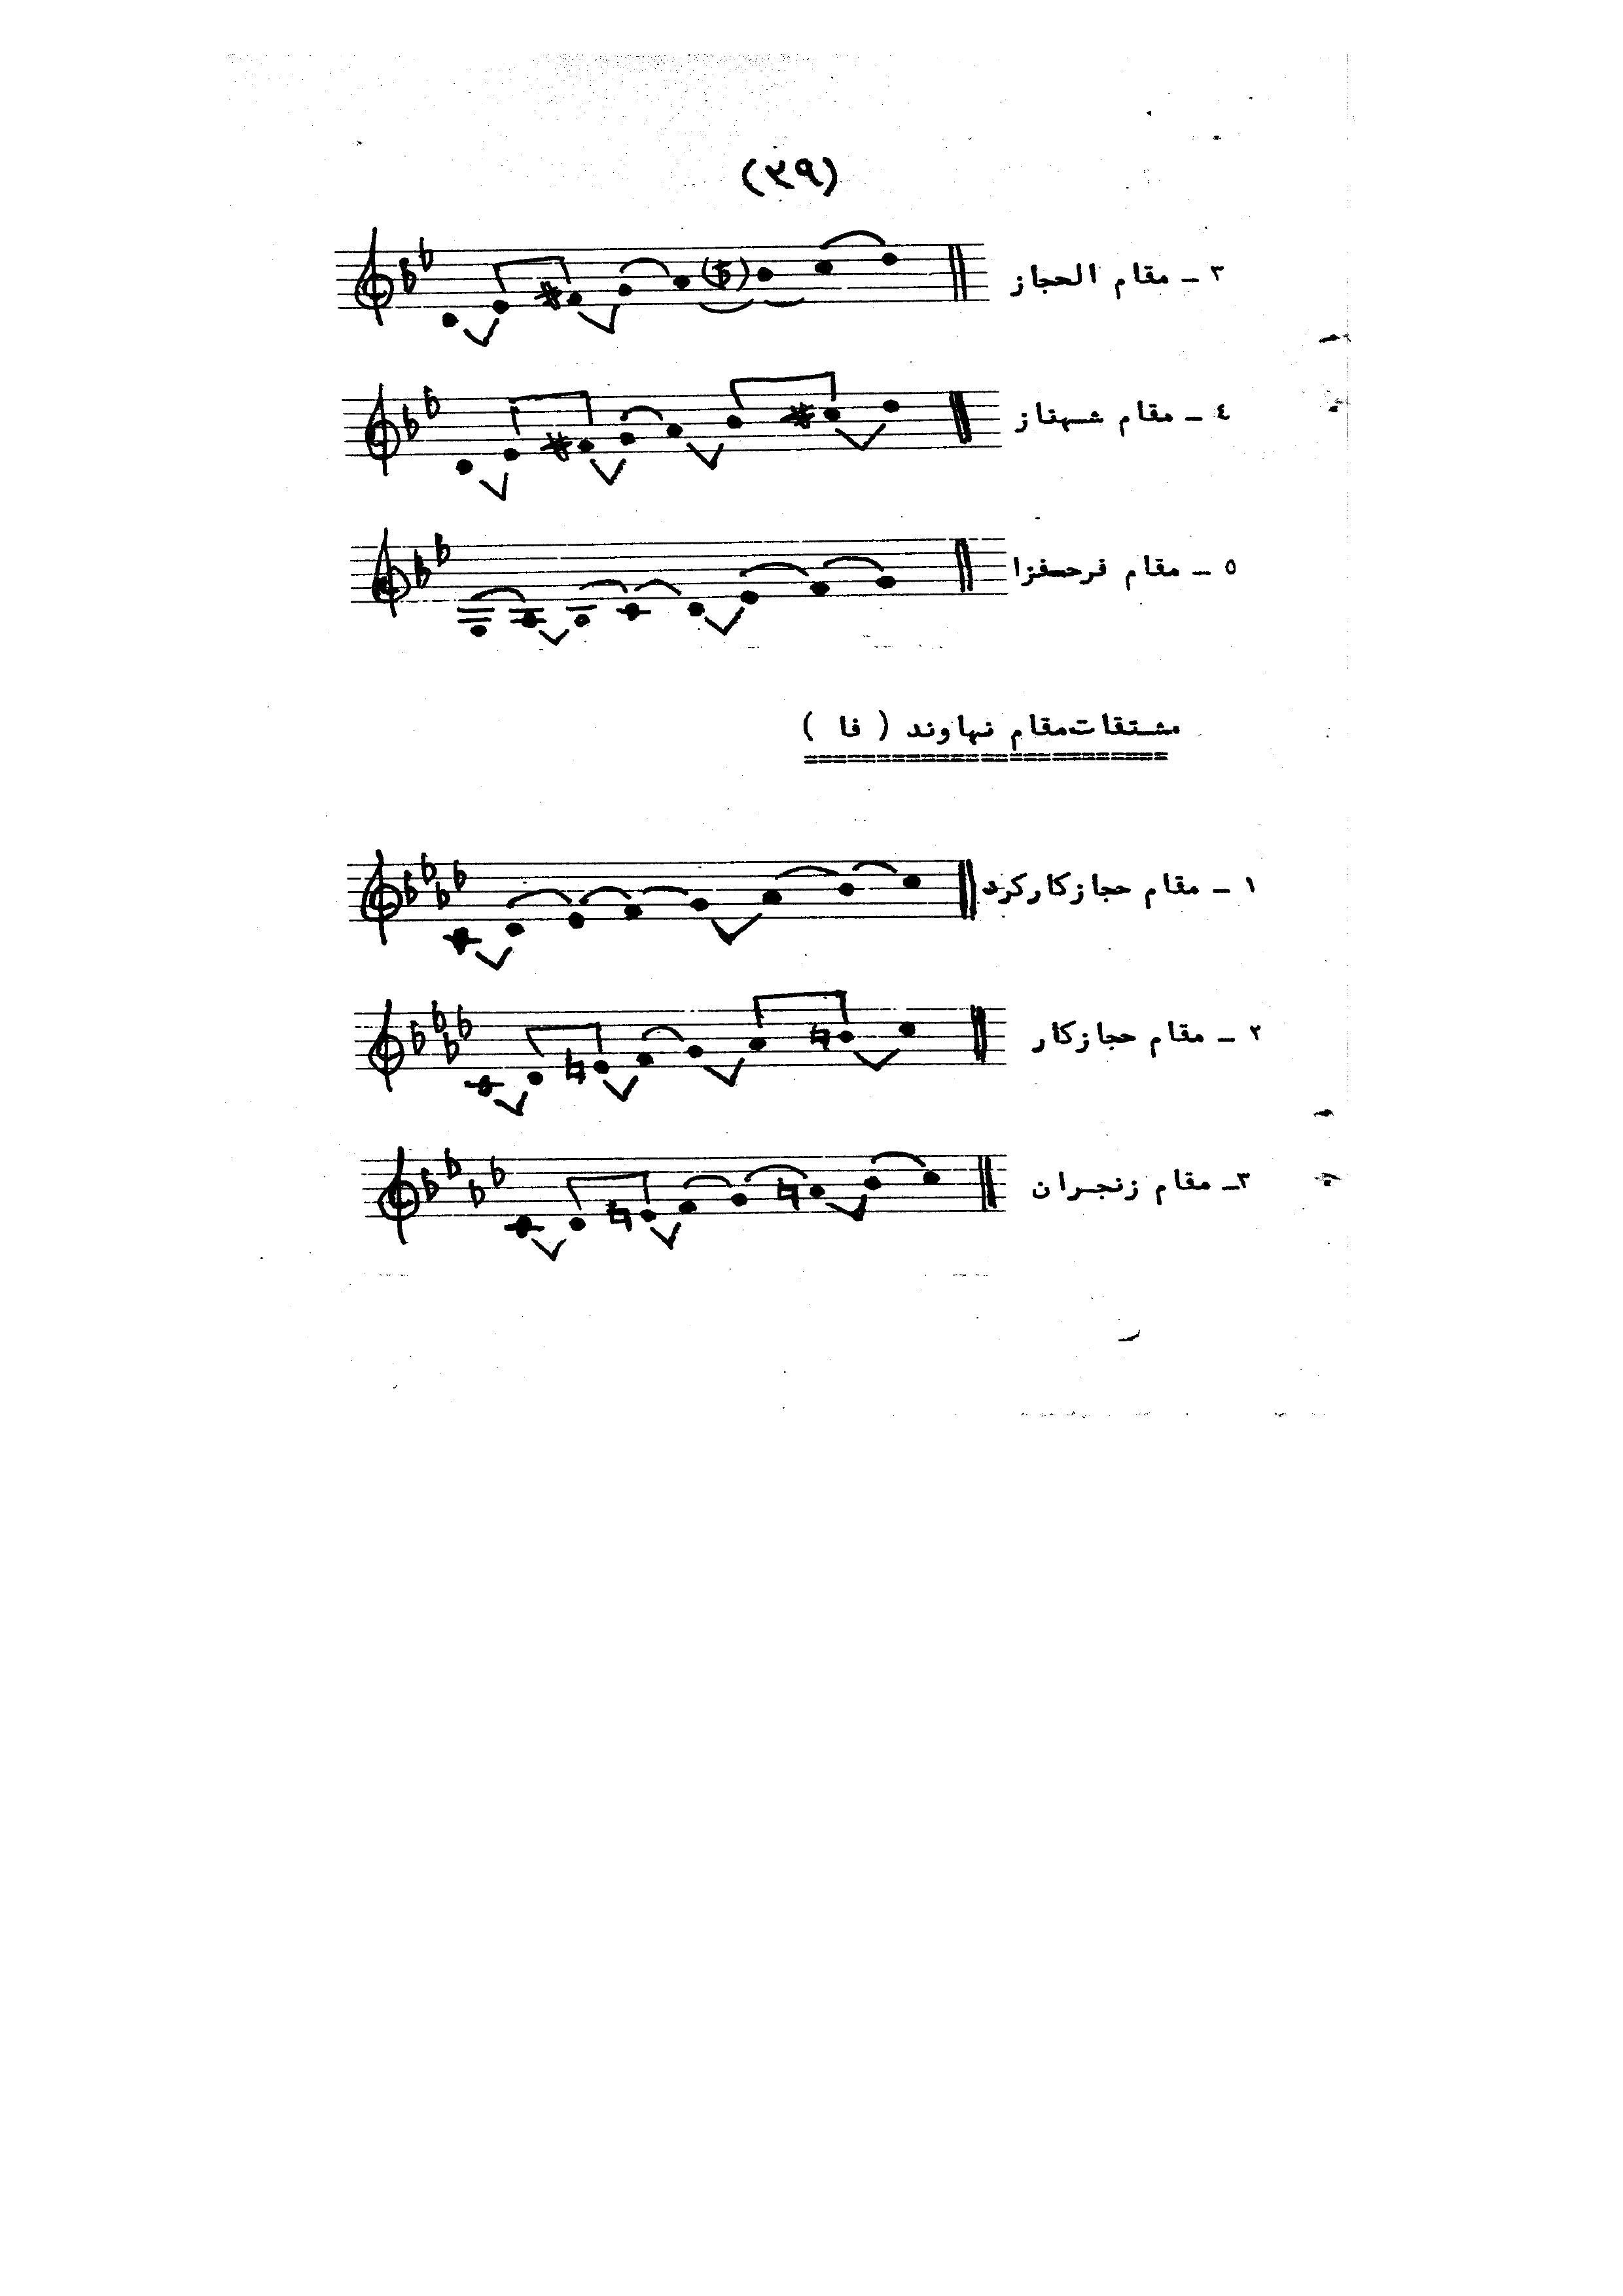 (٣٩)
٣ - مقام الحجاز
٤ - مقام شهناز
٥ - مقام فرحفزا
مشتقات مقام نهاوند ( فا )
١ - مقام حجازكاركرد
٢ - مقام حجازكار
٣- مقام زنجران